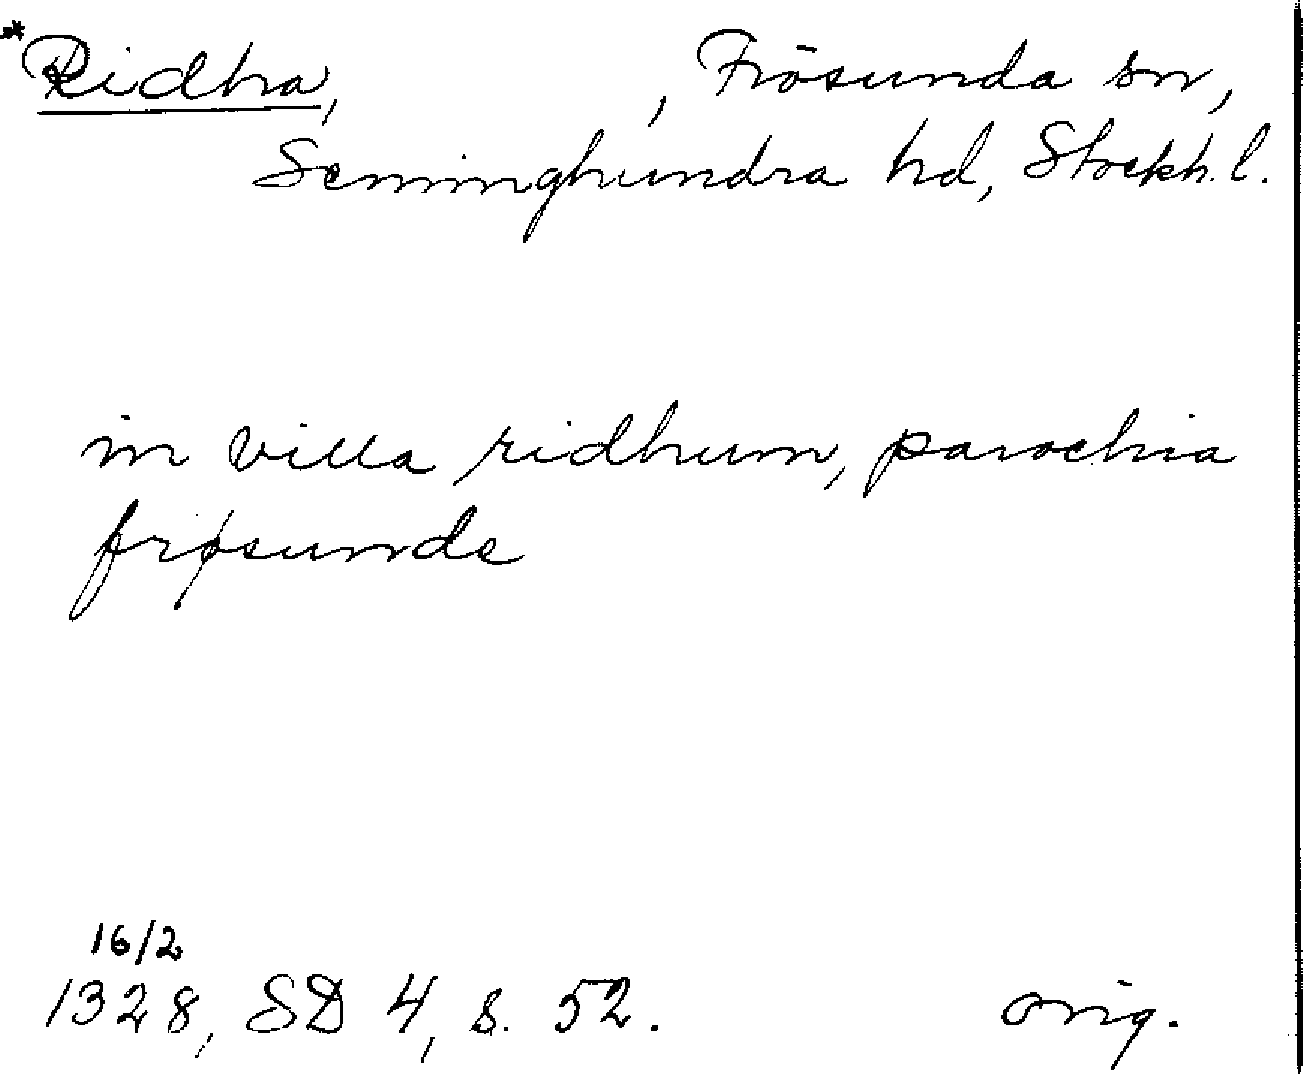 *Ridha, , Frösunda sn,
Seminghundra hd, Stockh. l.
in villa ridhum, parochia
frøsunde
16/2
1328, SD 4, s. 52. orig.